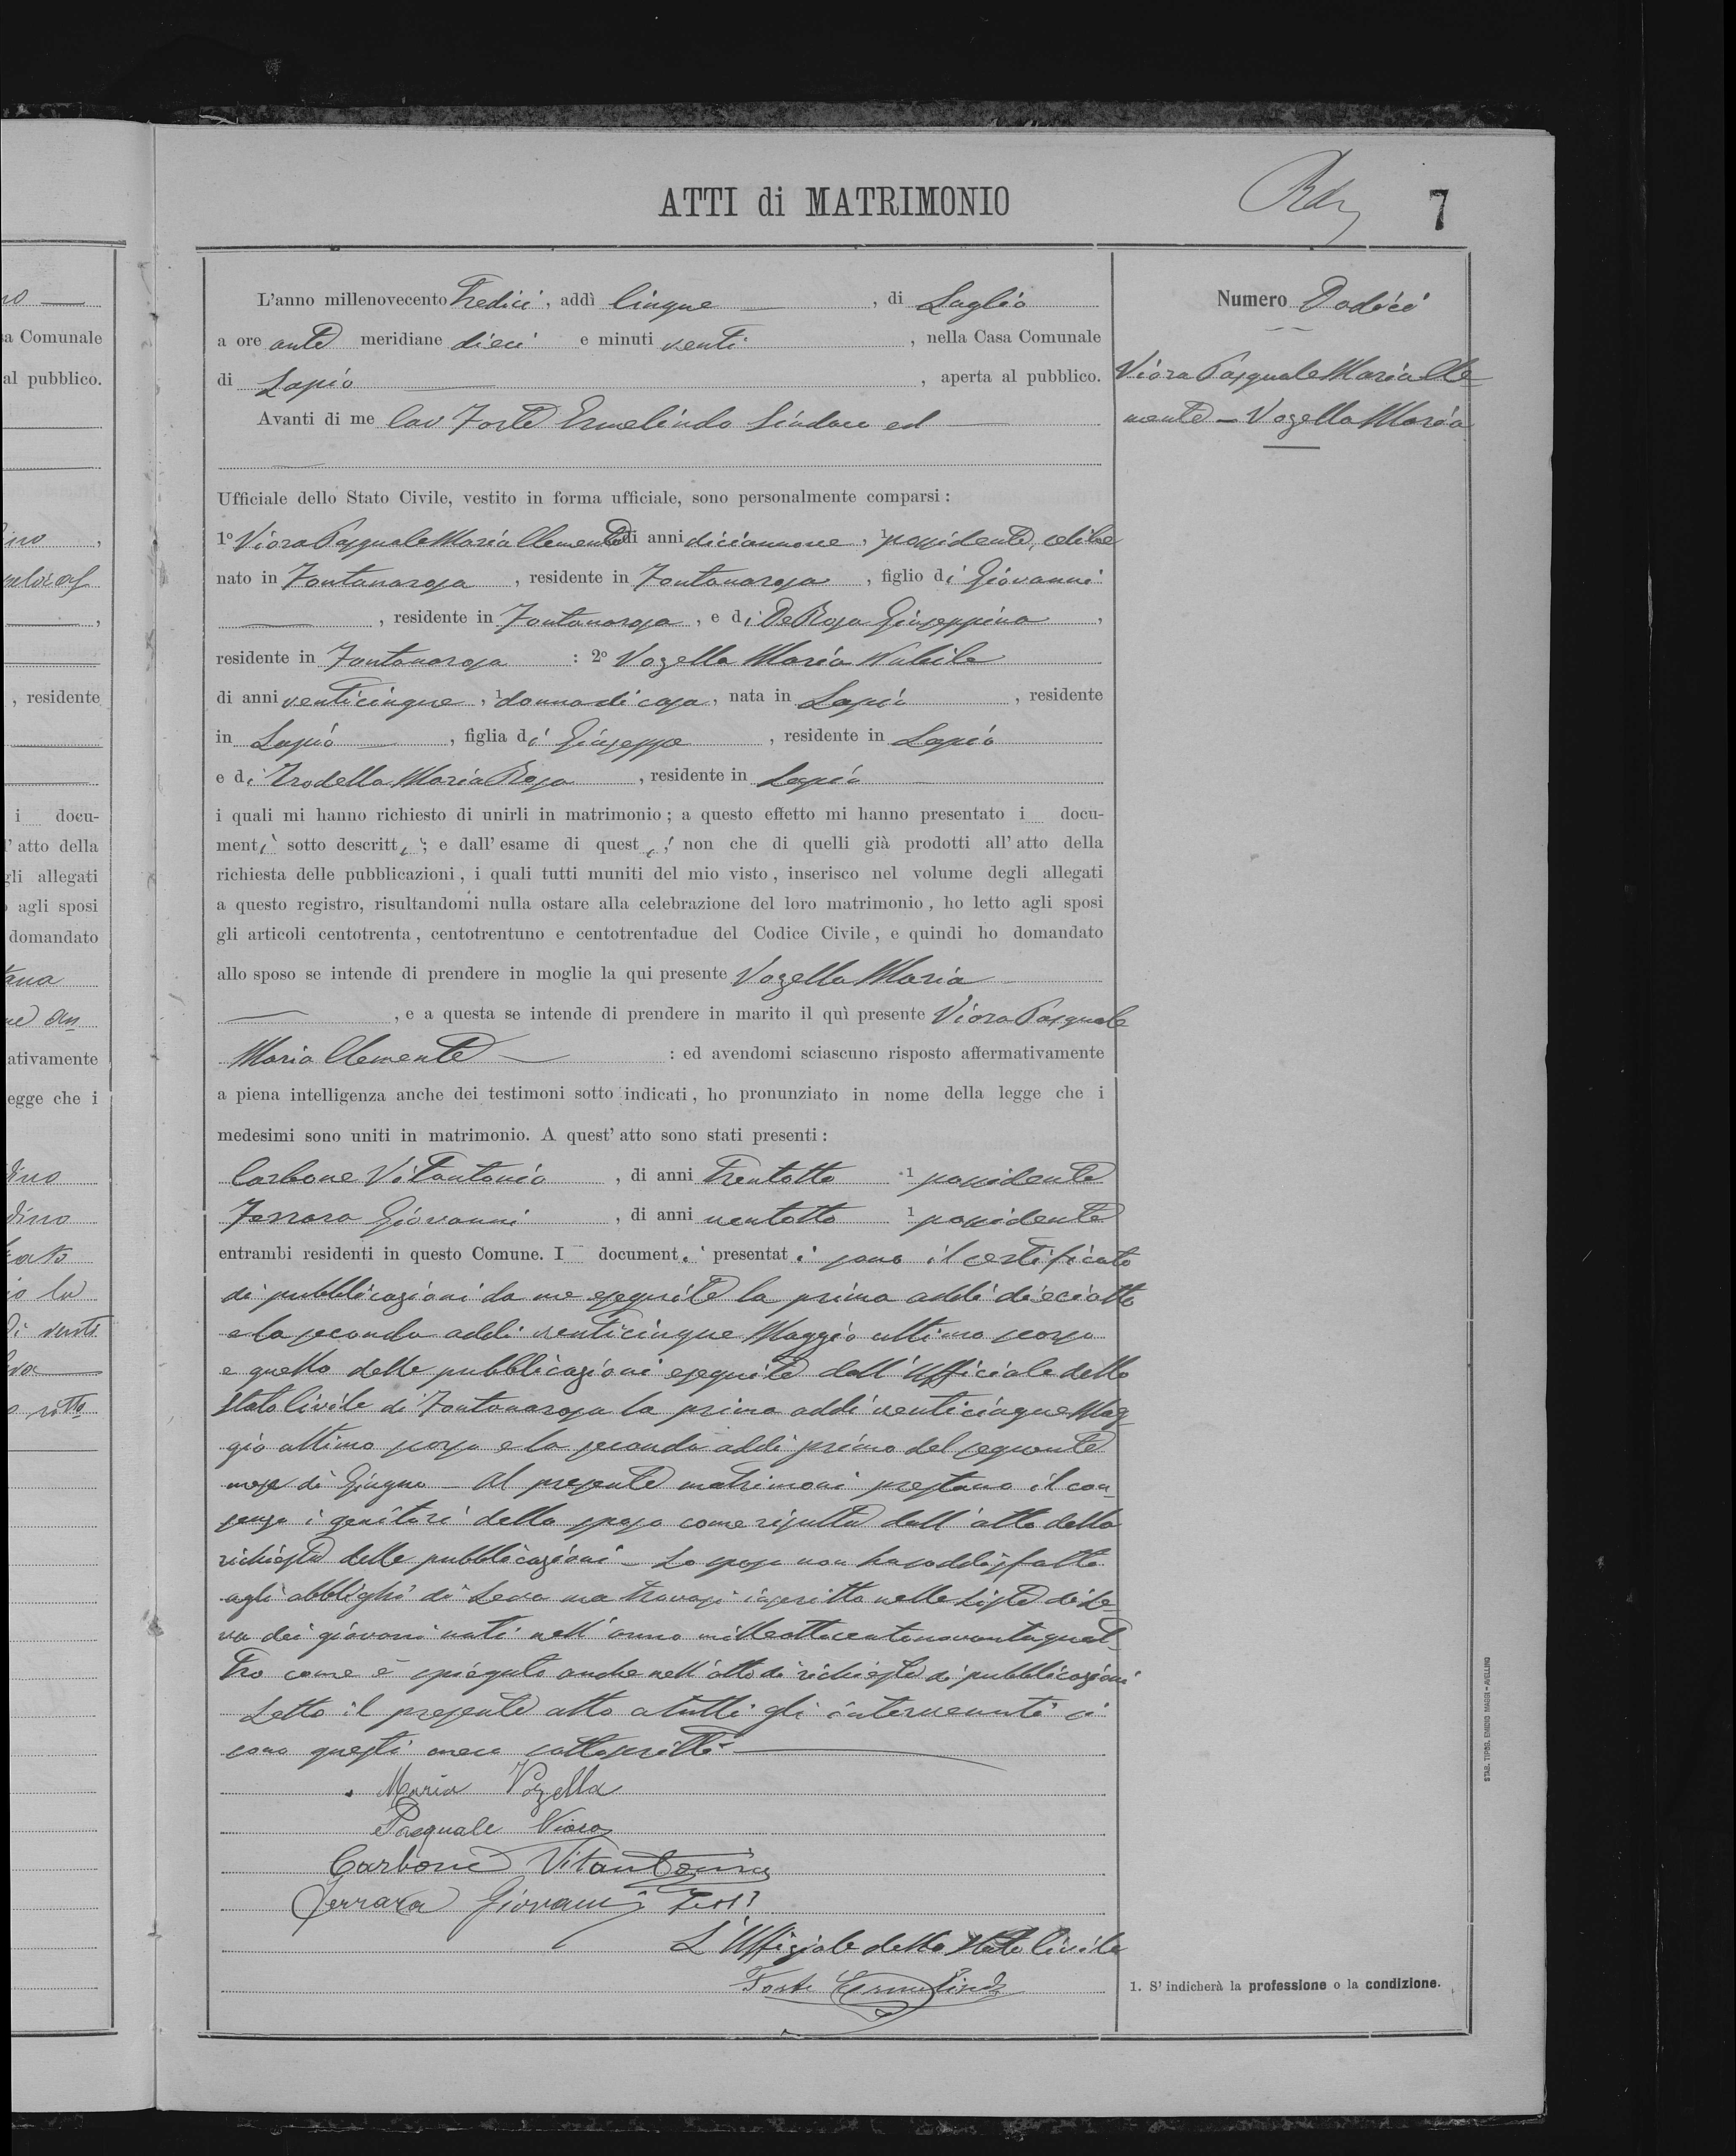 ATTI di MATRIMONIO
7
Numero Dodici
Viora Pasquale Maria Cle-
mente — Vozella Maria
L'anno millenovecento Tredici, addì Cinque, di Luglio
a ore ante meridiane dieci e minuti venti, nella Casa Comunale
di Lapio, aperta al pubblico.
Avanti di me Cav Forte Ermelindo Sindaco ed
Ufficiale dello Stato Civile, vestito in forma ufficiale, sono personalmente comparsi:
1º Viora Pasquale Maria Clemente di anni diciannove, 1 possidente, celibe
nato in Fontanarosa, residente in Fontanarosa, figlio di Giovanni
, residente in Fontanarosa, e di De Rosa Giuseppina,
residente in Fontanarosa : 2º Vozella Maria Nubile
di anni venticinque, 1 donna di casa, nata in Lapio, residente
in Lapio, figlia di Giuseppe, residente in Lapio
e di Trodella Maria Rosa, residente in Lapio
i quali mi hanno richiesto di unirli in matrimonio; a questo effetto mi hanno presentato i docu-
menti sotto descritti; e dall'esame di questi, non che di quelli già prodotti all'atto della
richiesta delle pubblicazioni, i quali tutti muniti del mio visto, inserisco nel volume degli allegati
a questo registro, risultandomi nulla ostare alla celebrazione del loro matrimonio, ho letto agli sposi
gli articoli centotrenta, centotrentuno e centotrentadue del Codice Civile, e quindi ho domandato
allo sposo se intende di prendere in moglie la qui presente Vozella Maria
, e a questa se intende di prendere in marito il quì presente Viora Pasquale
Maria Clemente : ed avendomi sciascuno risposto affermativamente
a piena intelligenza anche dei testimoni sotto indicati, ho pronunziato in nome della legge che i
medesimi sono uniti in matrimonio. A quest'atto sono stati presenti:
Carbone Vitantonio, di anni Trentotto 1 possidente
Ferrara Giovanni, di anni ventotto 1 possidente
entrambi residenti in questo Comune. I documenti presentati sono il certificato
di pubblicazioni da me eseguite la prima addì dieciotto
e la seconda addì venticinque Maggio ultimo scorso
e quello delle pubblicazioni eseguite dall'Ufficiale dello
Stato Civile di Fontanarosa la prima addì venticinque Mag
gio ultimo scorso e la seconda addì primo del seguente
mese di Giugno — Al presente matrimoni prestano il con
senso i genitori dello sposo come risulta dall'atto della
richiesta delle pubblicazioni — Lo sposo non ha soddisfatto
agli obblighi di Leva ma trovasi inscritto nelle Liste di Le
va dei giovani nati nell'anno milleottocentonovantaquat
tro come è spiegato anche nell'atto di richiesta di pubblicazioni
Letto il presente atto a tutti gli intervenuti si
sono questi meco sottoscritti
Maria Vozella
Pasquale Viora
Carbone Vitantonio
Ferrara Giovanni Test.
L'Uffiziale dello Stato Civile
Forte Ermelindo
1. S'indicherà la professione o la condizione.
STAB. TIPOG. EMIDIO MAGGI - AVELLINO